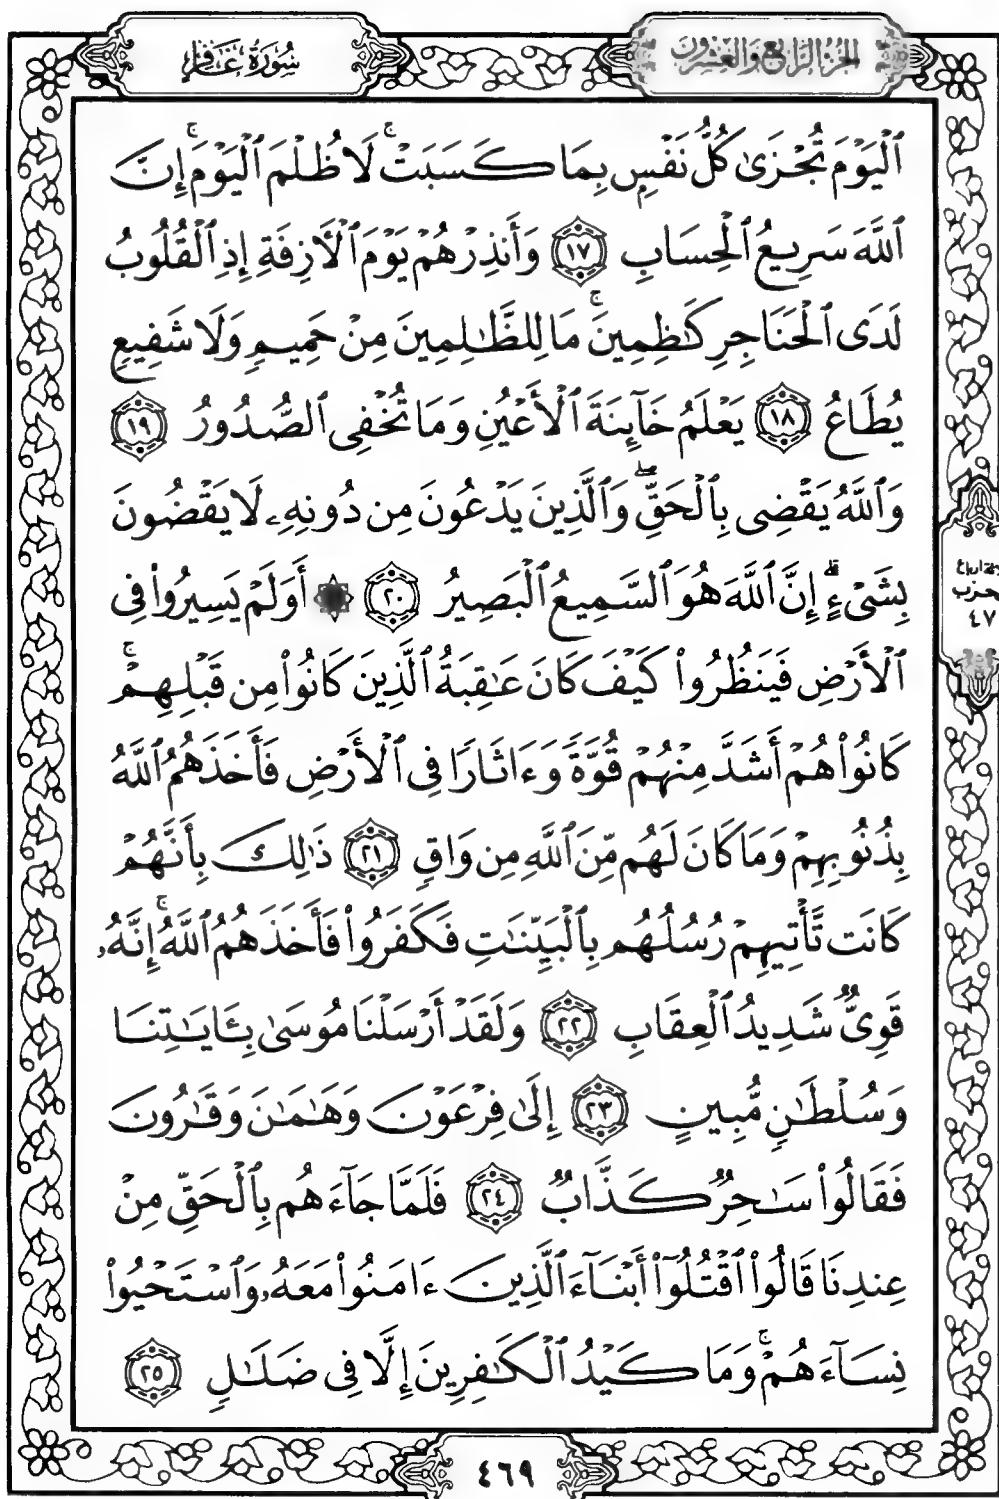 الجزء الرابع والعشرون
سُورَةُ غَافِرٍ
ٱلْيَوْمَ تُجْزَىٰ كُلُّ نَفْسٍۭ بِمَا كَسَبَتْۚ لَا ظُلْمَ ٱلْيَوْمَۚ إِنَّ
ٱللَّهَ سَرِيعُ ٱلْحِسَابِ ١٧ وَأَنذِرْهُمْ يَوْمَ ٱلْأَزِفَةِ إِذِ ٱلْقُلُوبُ
لَدَى ٱلْحَنَاجِرِ كَٰظِمِينَۚ مَا لِلظَّٰلِمِينَ مِنْ حَمِيمٍ وَلَا شَفِيعٍ
يُطَاعُ ١٨ يَعْلَمُ خَآئِنَةَ ٱلْأَعْيُنِ وَمَا تُخْفِى ٱلصُّدُورُ ١٩
وَٱللَّهُ يَقْضِى بِٱلْحَقِّۖ وَٱلَّذِينَ يَدْعُونَ مِن دُونِهِۦ لَا يَقْضُونَ
بِشَىْءٍۗ إِنَّ ٱللَّهَ هُوَ ٱلسَّمِيعُ ٱلْبَصِيرُ ٢٠ ۞ أَوَلَمْ يَسِيرُوا۟ فِى
ٱلْأَرْضِ فَيَنظُرُوا۟ كَيْفَ كَانَ عَٰقِبَةُ ٱلَّذِينَ كَانُوا۟ مِن قَبْلِهِمْۚ
كَانُوا۟ هُمْ أَشَدَّ مِنْهُمْ قُوَّةً وَءَاثَارًا فِى ٱلْأَرْضِ فَأَخَذَهُمُ ٱللَّهُ
بِذُنُوبِهِمْ وَمَا كَانَ لَهُم مِّنَ ٱللَّهِ مِن وَاقٍ ٢١ ذَٰلِكَ بِأَنَّهُمْ
كَانَت تَّأْتِيهِمْ رُسُلُهُم بِٱلْبَيِّنَٰتِ فَكَفَرُوا۟ فَأَخَذَهُمُ ٱللَّهُۚ إِنَّهُۥ
قَوِىٌّ شَدِيدُ ٱلْعِقَابِ ٢٢ وَلَقَدْ أَرْسَلْنَا مُوسَىٰ بِـَٔايَٰتِنَا
وَسُلْطَٰنٍ مُّبِينٍ ٢٣ إِلَىٰ فِرْعَوْنَ وَهَٰمَٰنَ وَقَٰرُونَ
فَقَالُوا۟ سَٰحِرٌ كَذَّابٌ ٢٤ فَلَمَّا جَآءَهُم بِٱلْحَقِّ مِنْ
عِندِنَا قَالُوا۟ ٱقْتُلُوٓا۟ أَبْنَآءَ ٱلَّذِينَ ءَامَنُوا۟ مَعَهُۥ وَٱسْتَحْيُوا۟
نِسَآءَهُمْۚ وَمَا كَيْدُ ٱلْكَٰفِرِينَ إِلَّا فِى ضَلَٰلٍ ٢٥
حزب
٤٧
٤٦٩